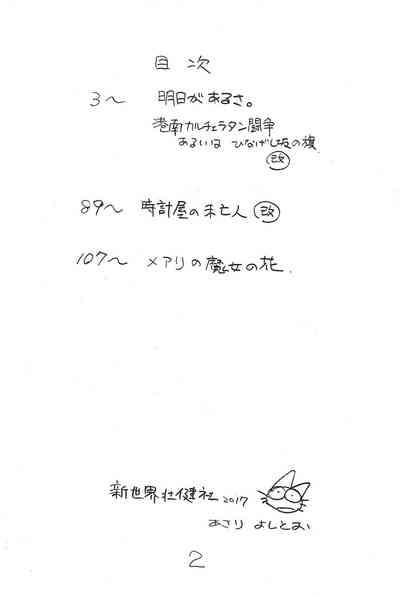 目次
3〜 明日があるさ。
港南カルチェラタン闘争
あるいは ひなげし坂の旗
改
89〜 時計屋の未亡人 改
107〜 メアリの魔女の花.
新世界壮健社 2017
あさり よしとお
2